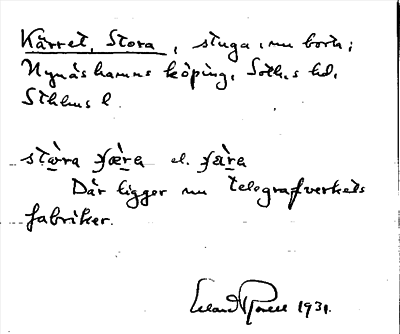 Kärret, Stora, stuga, nu borta;
Nynäshamns köping, Soth.s hd.
Sthlms l.
stɷ̀ra çæ̀rə el. çàrə
Där ligger nu telegrafverkets
fabriker.
Erland Rosell 1931.